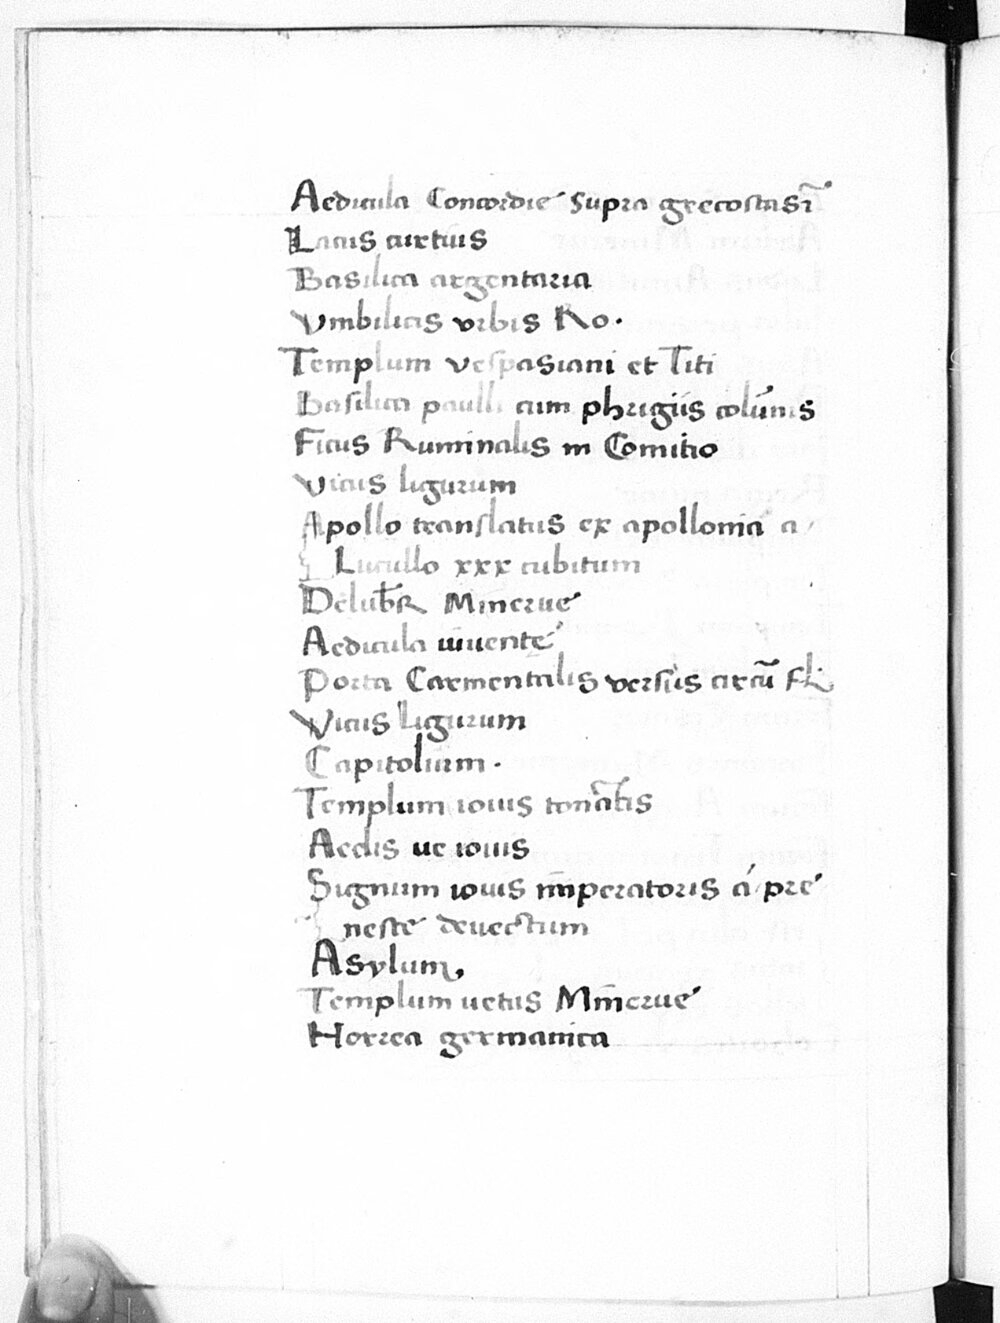 Aedicula Concordie supra grecostasĩ
Lacus curtius
Basilica argentaria
Vmbilicus vrbis Ro.
Templum vespasiani et Titi
Basilica paulli cum phrigiis colũnis
Ficus Ruminalis in Comitio
Vicus ligurum
Apollo translatus ex apollonia a
Lucullo xxx cubitum
Minerue
Aedicula iuuente
Porta Carmentalis versus circũ
Vicus ligurum
Capitolium.
Templum iouis tonãtis
Aedis ue iouis
Signum iouis imperatoris a pre
neste deuectum
Asylum,
Templum uetus Minerue
Horrea germanica